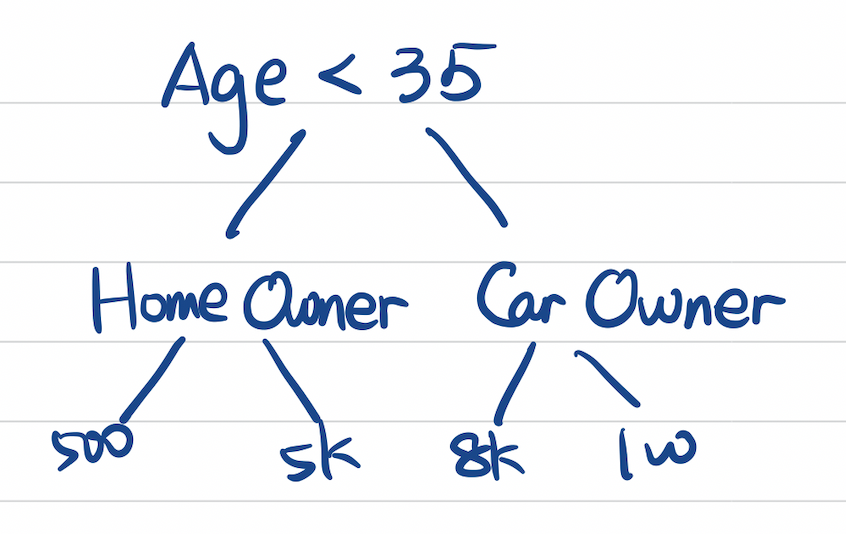 Age < 35
Home Owner Car Owner
500 5k 8k 1w